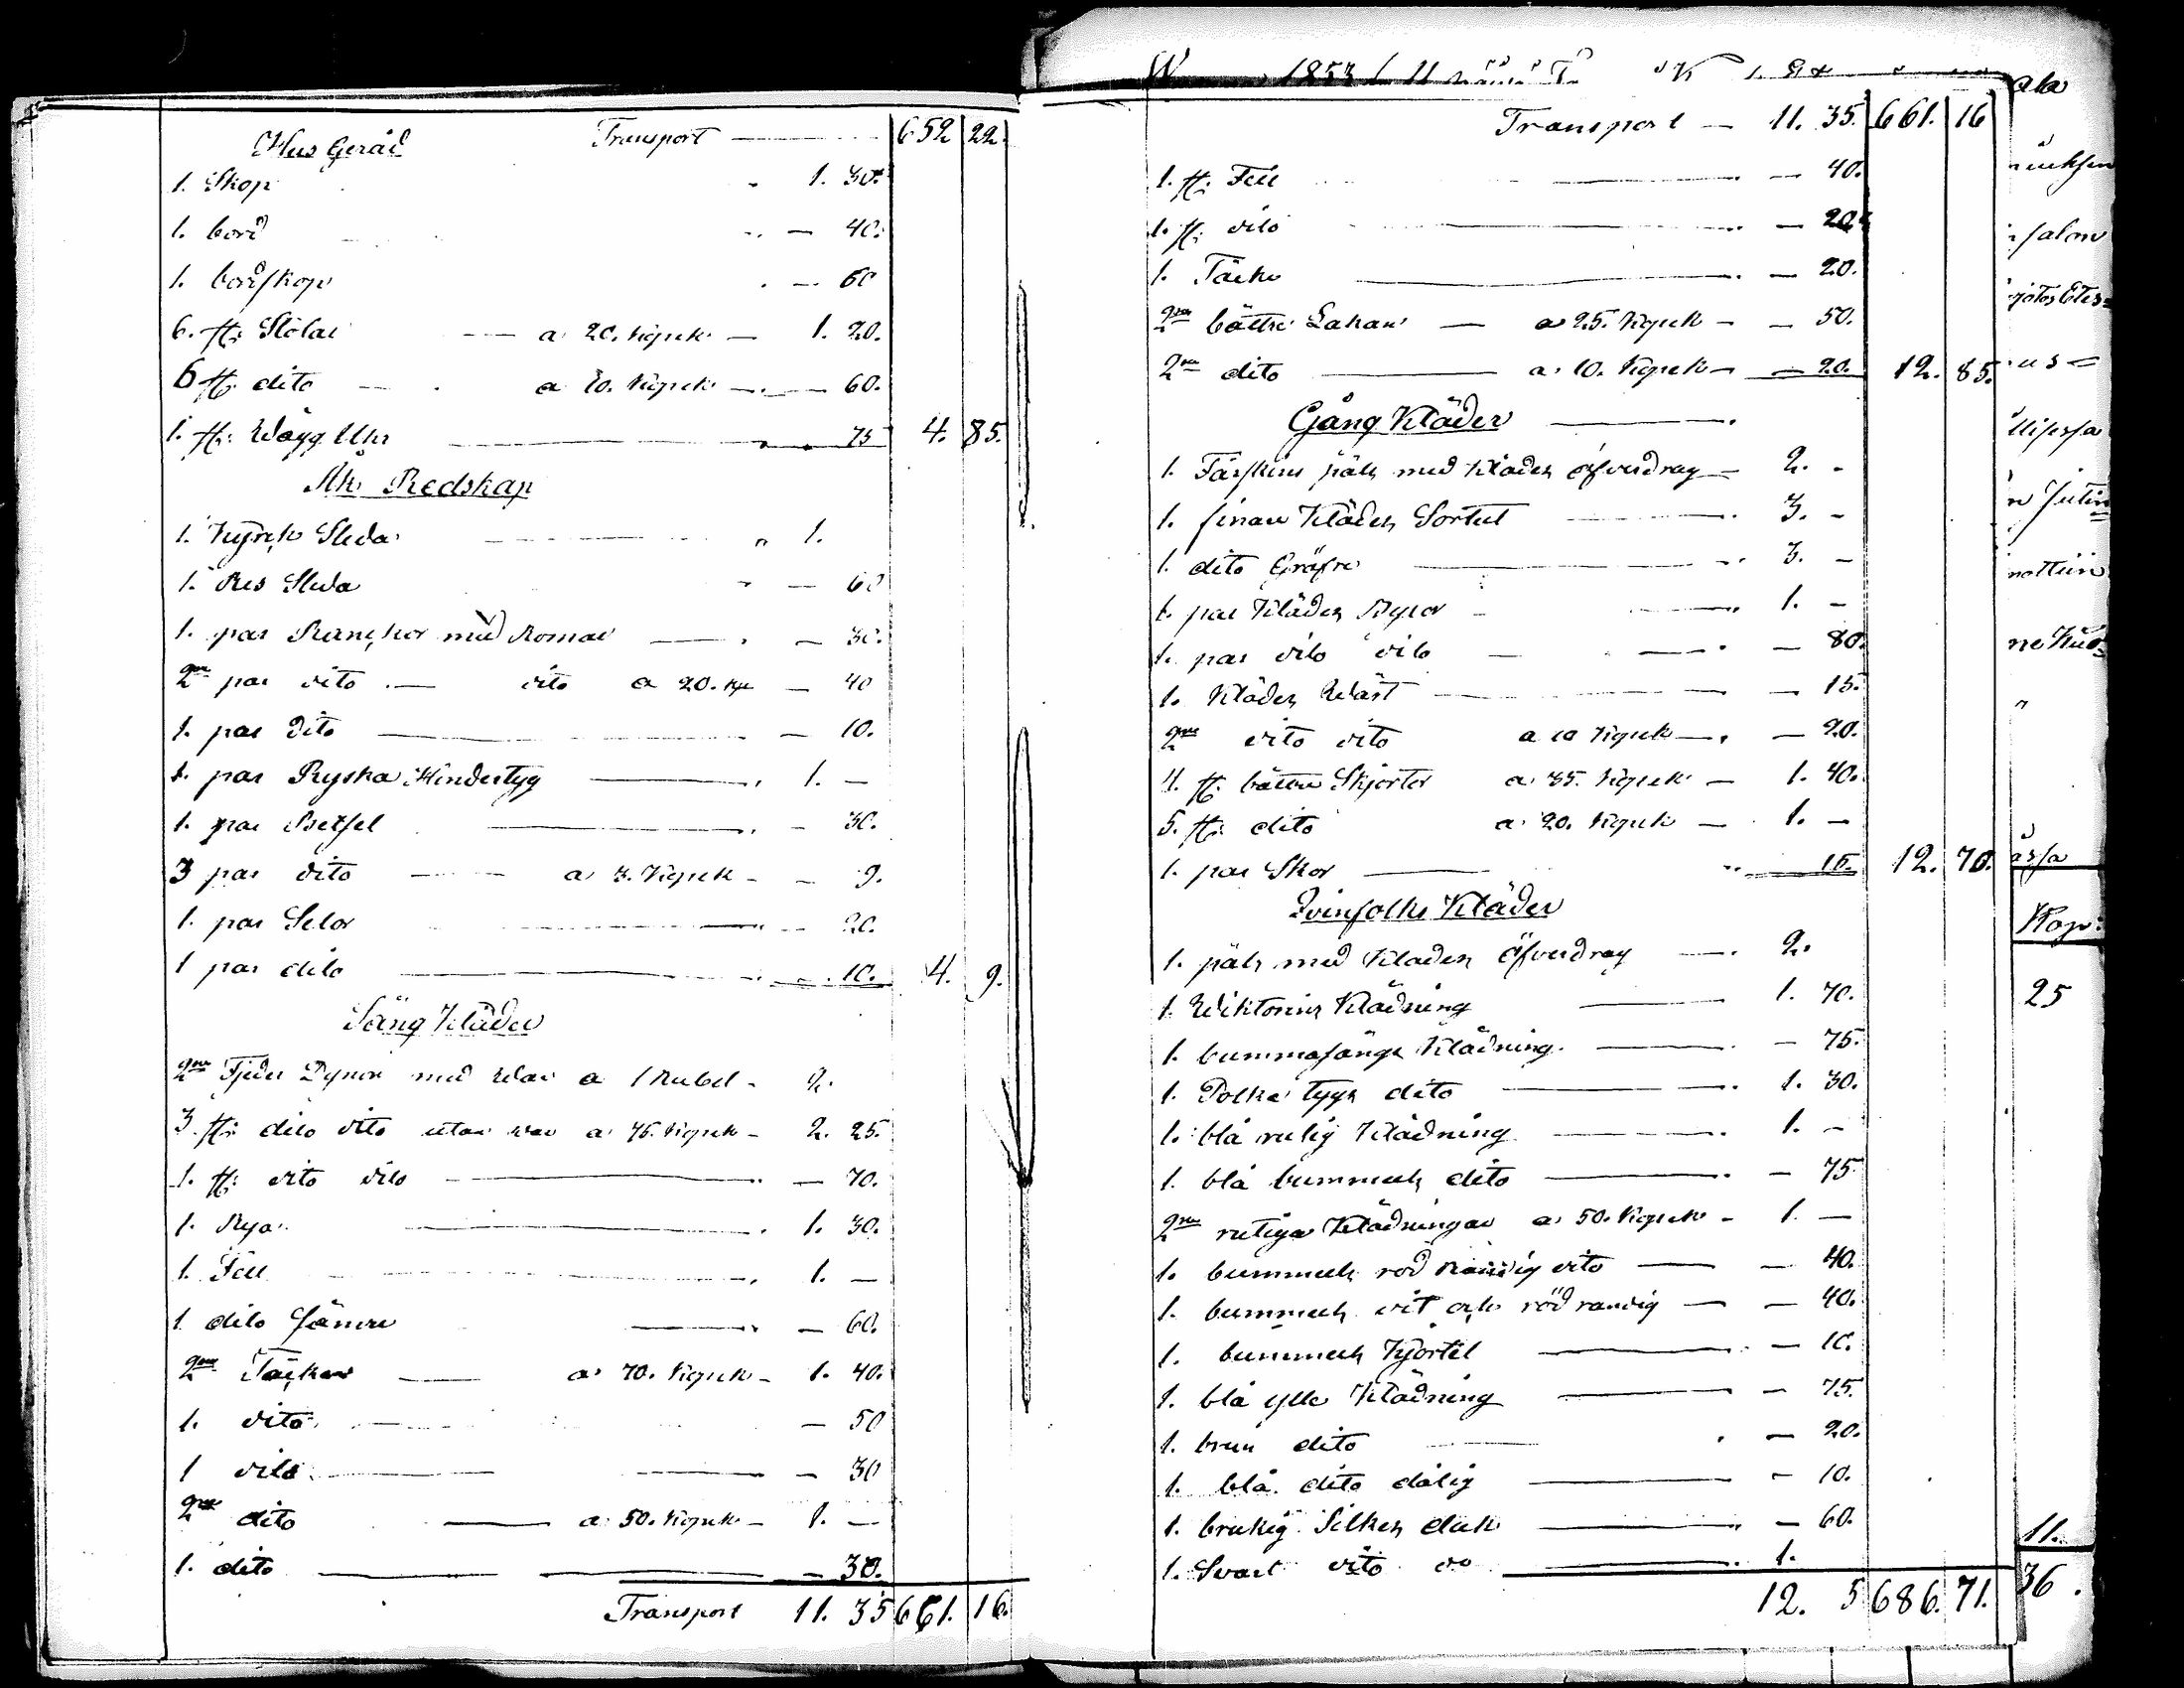 Hus Geråd Transport — 652 22.
1. Skåp 1. 30.
1. bord — 40.
1. bordskåp — 60
6. st: Stolar — a 20. Kopek — 1. 20.
6 st: dito — a 10. Kopek — — 60.
1. st: Wägg Uhr — 75 4. 85.
Åk Redskap
1. Kyrck Sleda — 1.
1. Res Sleda — 60
1. par med — 30.
2ne par dito — dito a 20. kp — 40
1. par dito — 10.
1. par Ryska Hindertyg — 1. —
1. par Betsel — 30.
3 par dito — a 3. Kopek — — 9.
1. par Selor — 20.
1 par dito — 10. 4. 9.
Säng Kläder
2ne Fjeder Dynor med War a 1 Rubel — 2.
3 st: dito dito utan war a 75. Kopek — 2. 25.
1. st: dito dito — 70.
1. Rya — 1. 30.
1. Fell — 1. —
1 dito sämre — 60.
2ne Täcken — a 70. Kopek — 1. 40.
1. dito — 50
1 dito — 30
2ne dito — a 50. Kopek — 1. —
1. dito — 30.
Transport 11. 35 661. 16.
1853
Transport — 11. 35. 661. 16
1. st. Fell — 40.
1. st: dito — 20.
1. Täcke — 20.
2ne bättre Lakan — a 25. Kopek — — 50.
2ne dito — a 10. Kopek — — 20. 12. 85.
Gång Kläder —
1. Fårskins päls med klädes öfverdrag — 2. -
1. finare Klädes Sortut — 3. -
1. dito — 3. -
1. par Klädes Byxor — 1. -
1. par dito dito — 80.
1. Klädes Wäst — 15.
2ne dito dito a 10 Kopek — — 20.
4. st. bättre Skjortor a 35. Kopek — 1. 40.
5. st: dito a 20. Kopek — 1. -
1. par Skor — 15. 12. 70.
Qvinfolks Kläder
1. päls med Klädes öfverdrag — 2.
1. Klädning — 1. 70.
1. Klädning — 75.
1. Polka tygs dito — 1. 30.
1. blå rutig Klädning — 1. -
1. blå bummuls dito — 75
2ne rutiga Klädningar a 50. Kopek — 1. —
1. bummuls röd randig dito — 40.
1. bummuls vit och röd randig — 40.
1. bummuls Kjortel — 10.
1. blå ylle Klädning — 75.
1. brun dito — 20.
1. blå dito dålig — 10.
1. brukig Silkes duk — 60.
1. Svart dito do — 1.
12. 5 686. 71.
Kop:
25
11.
36.